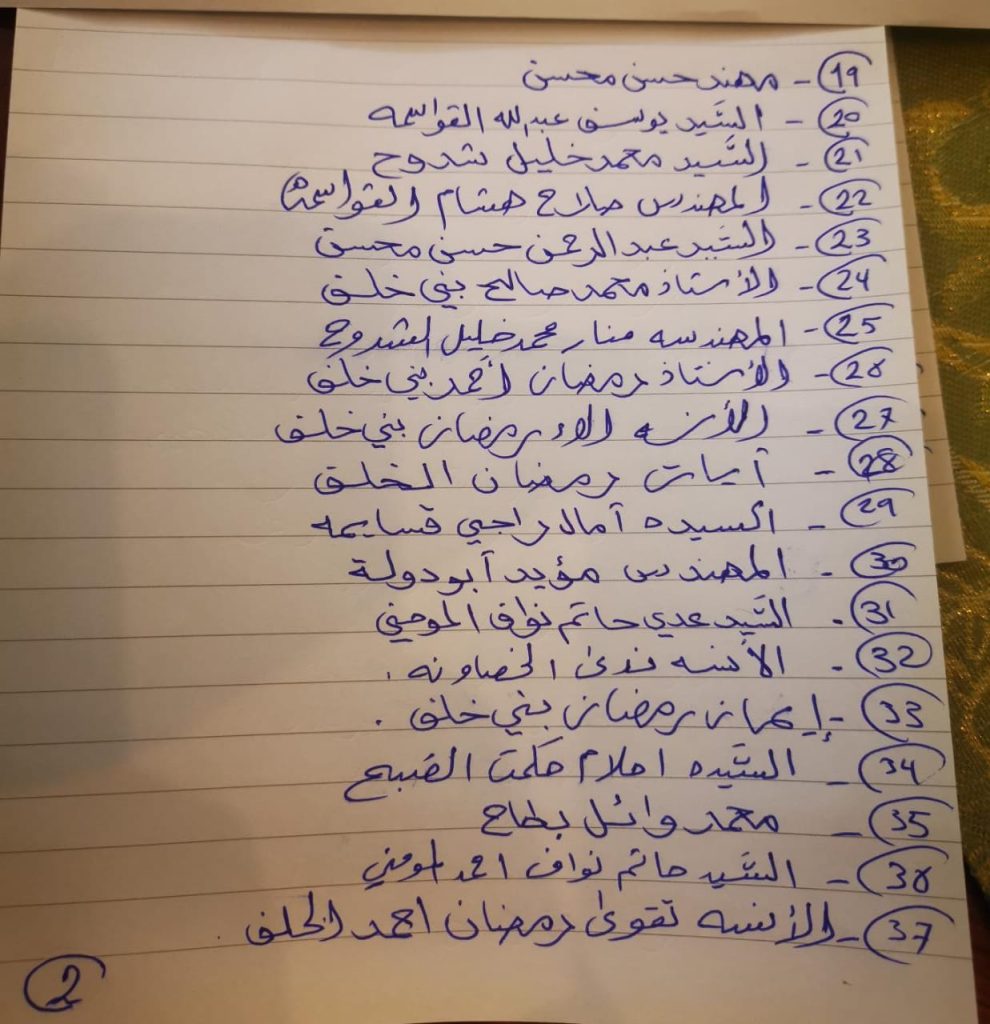 19 - مهند حسن محسن
20 - السَّيد يوسف عبدالله القواسمه
21 - السَّيد محمد خليل شدوح
22 - المهندس صلاح هشام القواسمة
23 - السَّيد عبد الرحمن حسن محسن
24 - الأستاذ محمد صالح بني خلف
25 - المهندسه منار محمد خليل الشدوح
26 - الأستاذ رمضان أحمد بني خلف
27 - الأنسه الاء رمضان بني خلف
28 - آيات رمضان الخلف
29 - السيده آمال راجي قسايمه
30 - المهندس مؤيد أبو دولة
31 - السَّيد عدي حاتم نواف المومني
32 - الأنسه ندى الخصاونه .
33 - إيمان رمضان بني خلف .
34 - السَّيده احلام حكمت الصبح
35 - محمد وائل بطاح
36 - السَّيد حاتم نواف احمد المومني
37 - الأنسه تقوى رمضان احمد الخلف .
2